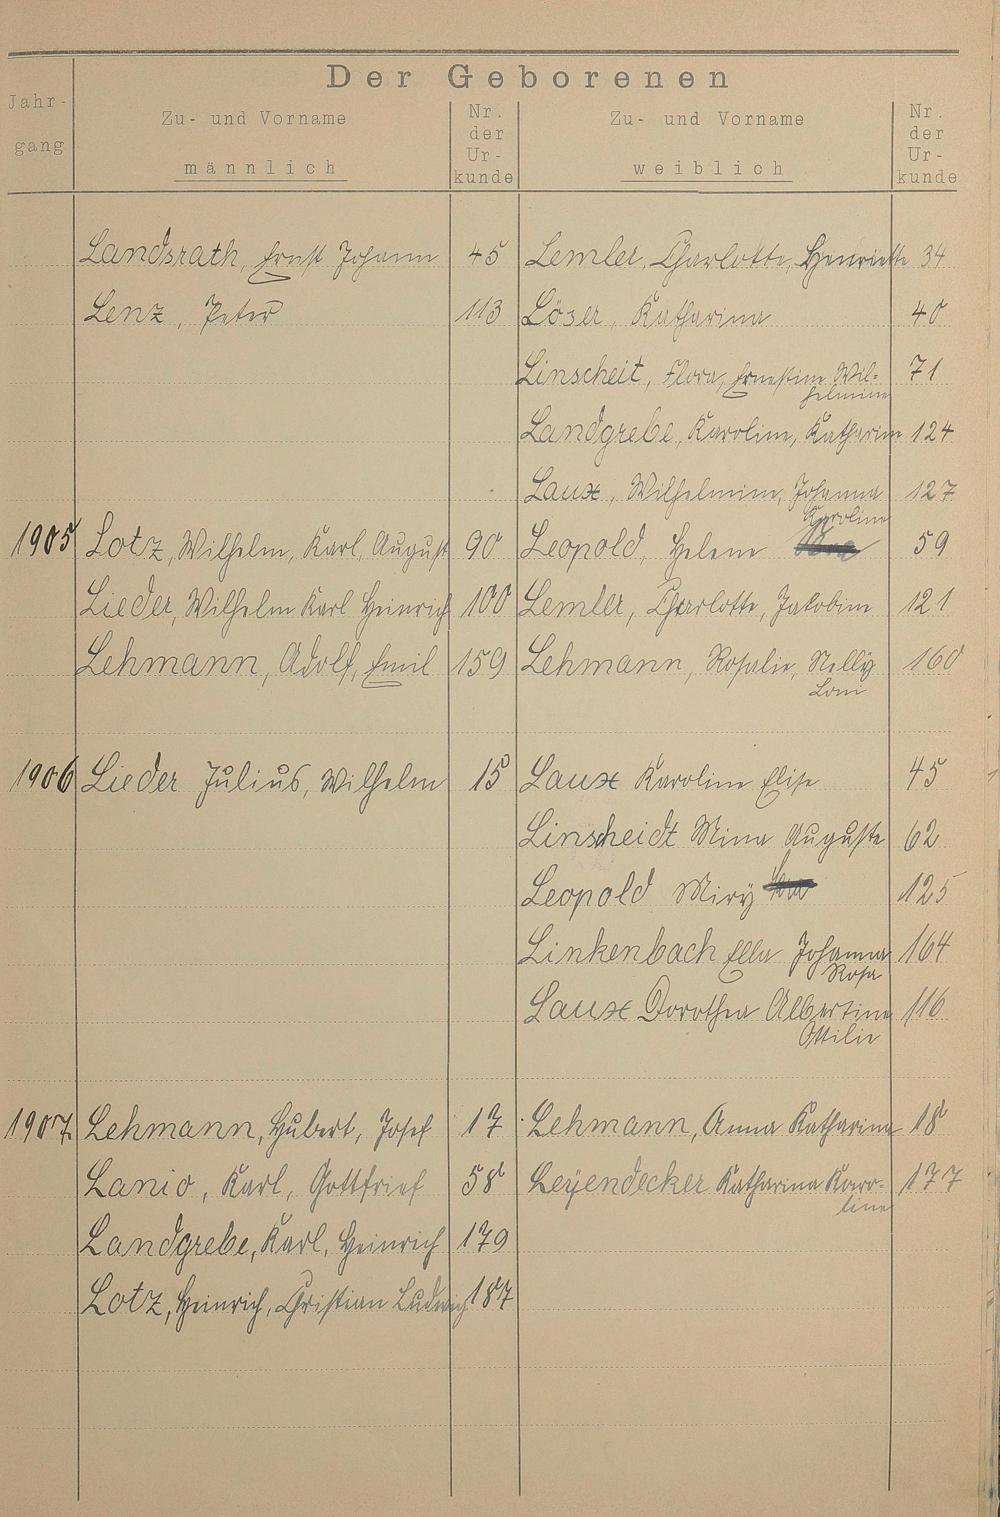 Der Geborenen
Jahr-
gang
Zu- und Vorname
männlich
Nr.
der
Ur-
kunde
Zu- und Vorname
weiblich
Nr.
der
Ur-
kunde
Landsrath, Ernst Johann 45 Lemler, Charlotte, Henriette 34
Lenz, Peter 113 Löser, Katharina 40
Linscheit, Flora, Ernestine Wil- 71
helmine
Landgrebe, Karoline, Katharine 124
Laux, Wilhelmine, Johanna 127
Karoline
1905 Lotz, Wilhelm, Karl, August 90 Leopold, Helene 59
Lieder, Wilhelm Karl Heinrich 100 Lemler, Charlotte, Jakobine 121
Lehmann, Adolf, Emil 159 Lehmann, Rosalie, Nelly 160
Loni
1906 Lieder Julius, Wilhelm 15 Laux Karoline Elise 45
Linscheidt Mina Auguste 62
Leopold Miry 125
Linkenbach Ella Johanna 164
Rosa
Laux Dorothea Albertine 116
Ottilie
1907 Lehmann, Hubert, Josef 17 Lehmann, Anna Katharina 18
Lanio, Karl, Gottfried 58 Leyendecker Katharina Karo- 177
line
Landgrebe, Karl, Heinrich 179
Lotz, Heinrich, Christian Ludwig 187